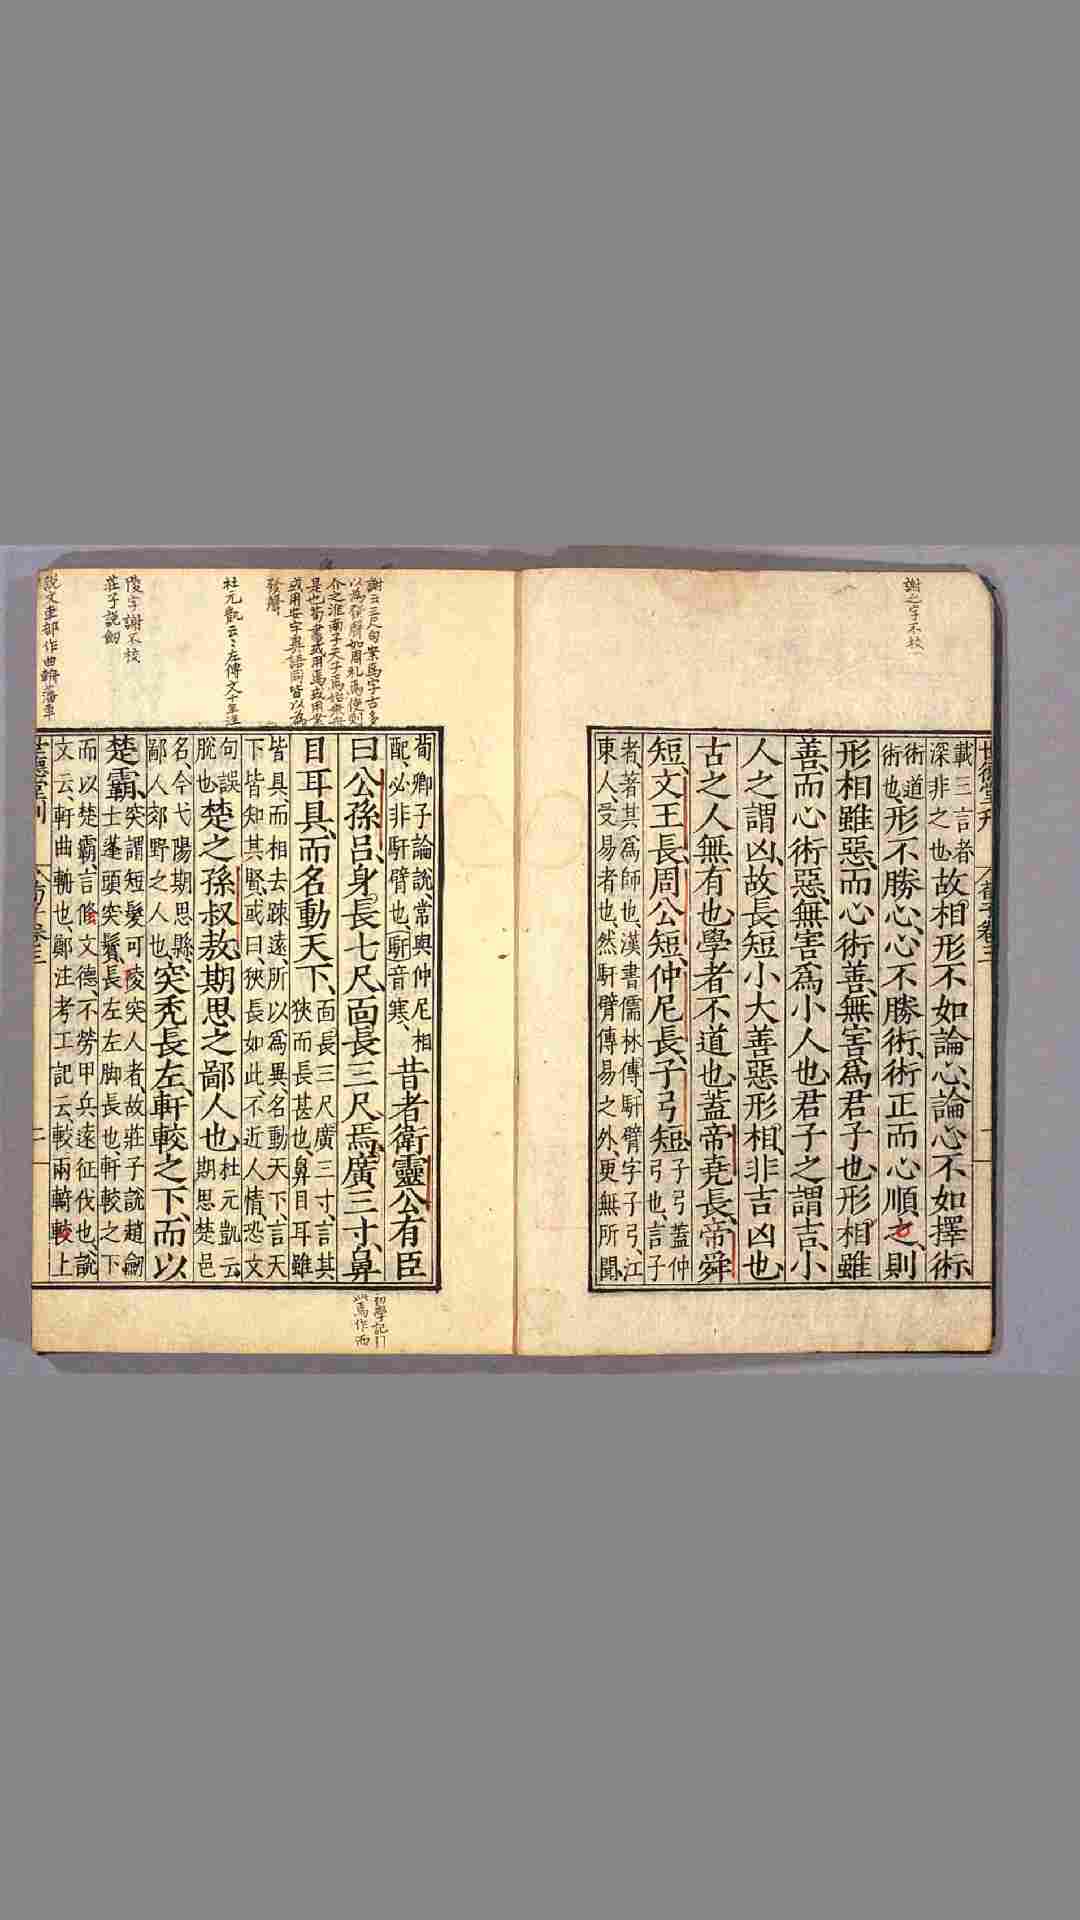 謝之字不校
世德堂刊 荀子卷三
載三言者
深非之也故相形不如論心、論心不如擇術、
術道
術也形不勝心、心不勝術、術正而心順之、則
形相雖惡、而心術善、無害爲君子也、形相雖
善、而心術惡、無害爲小人也、君子之謂吉、小
人之謂凶、故長短小大善惡形相、非吉凶也、
古之人無有也、學者不道也、蓋帝堯長、帝舜
短、文王長、周公短、仲尼長、子弓短、
子弓蓋仲
弓也、言子
者、著其爲師也、漢書儒林傳、馯臂字子弓、江
東人、受易者也、然馯臂傳易之外、更無所聞、
謝云三尺句案焉字古多
以為發聲如周礼焉使則
介之淮南子天子焉始乘舟
是也荀書或用焉或用案
或用安字異語同皆以為
發聲
杜元凱云云左傳文十年注
陵字謝不校
莊子説劒
説文車部作曲輈藩車
荀卿子論說、常與仲尼相
配、必非馯臂也、馯音寒、昔者衛靈公有臣
曰公孫呂、身長七尺、面長三尺、焉廣三寸、鼻
目耳具、而名動天下、
面長三尺、廣三寸、言其
狹而長甚也、鼻目耳雖
皆具、而相去踈遠、所以爲異、名動天下、言天
下皆知其賢、或曰、狹長如此、不近人情、恐文
句誤
脫也楚之孫叔敖、期思之鄙人也
杜元凱云
期思楚邑
名、今弋陽期思縣、
鄙人郊野之人也、突禿長左、軒較之下、而以
楚霸、
突謂短髮可陵突人者、故莊子說趙劒
士蓬頭突鬢、長左左脚長也、軒較之下
而以楚霸、言脩文德、不勞甲兵遠征伐也、說
文云、軒曲輈也、鄭注考工記云、較兩輢較上
世德堂刊 荀子卷三 二
初學記引
此焉作而